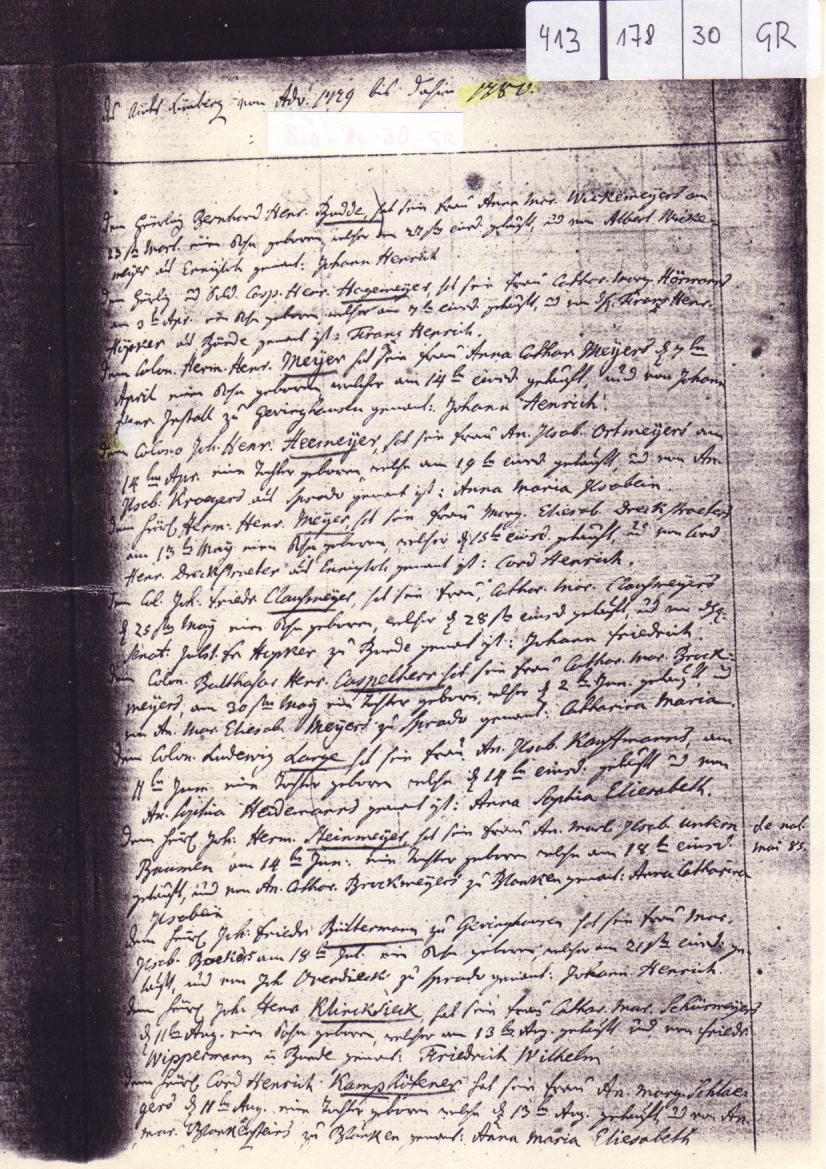 413 178 30 GR
Amts Limberg von Adv. 1779 bis dahin 1780.
dem Heuerling Bernhard Henr. Budde, hat sein Frau Anna Mar. Wickemeyers am
23 Mart. ein Sohn geboren, welcher den 27 eiusd. getauft, und von Albert Wicke-
meyer aus Ennigloh genant: Johann Henrich
Casp. Henr. Hagemeyer, hat sein Frau Cathar. Marg. Hörmans
am 3 Apr. ein Sohn geboren welcher am 7 eiusd. getauft, und von Franz Henr.
Höpker aus Bünde genant ist: Franz Henrich.
dem Colon. Herm. Henr. Meyer hat sein Frau Anna Cathar. Meyers d 7
April einen Sohn geboren welcher am 14 eiusd. getauft, und von Johann
Henr. zu Gevinghausen genant: Johann Henrich.
dem Colono Joh. Henr. Heemeyer, hat sein Frau An. Ilsab. Ortmeyers am
14 Apr. eine Tochter geboren, welche am 19 eiusd getauft, und von An.
Ilsab. Kroegers aus Spradow genant ist: Anna Maria Ilsabein
dem Heuerl. Herm. Henr. Meyer, hat sein Frau Marg. Eliesab. Dreckstraeters
am 13 May einen Sohn geboren, welcher d 15 eiusd. getauft, und von Cord
Henr. Dreckstraeter aus Ennigloh genant ist: Cord Henrich.
dem Col. Joh. Friedr. Clausmeyer, hat sein Frau, Cathar. Mar. Clausmeyers
d 25 May einen Sohn geboren, welcher d 28 eiusd getauft, und von
Senat: Höpker zu Bünde genant ist: Johann Friedrich.
dem Colon. Balthasar Henr. Caspelherr hat sein Frau Cathar. Mar. Brock-
meyers, am 30 May ein Tochter geboren, welche d 2 Jun. getauft, und
von An. Mar. Eliesab. Meyers zu Spradow genant: Catharina Maria.
dem Colon. Ludewig Large hat sein Frau An. Ilsab. Kauffmanns, am
11 Jun. ein Tochter geboren welche d 14 eiusd. getauft und von
An. Sophia Heidemanns genant ist: Anna Sophia Eliesabeth.
dem Heuerl. Joh. Herm. Steinmeyer hat sein Frau An. Marl. Ilsab. Untern
Baumen am 14 Jun: ein Tochter geboren welche am 18 eiusd
getauft, und von An. Cathar. Brockmeyers zu Blanken genant: Anna Catharina
Ilsabein
de nat. mai 85.
dem Heuerl. Joh. Friedr. Bültermann zu Gevinghausen hat sein Frau Mar.
Ilsab. Boekers am 18 Jul. ein Sohn geboren, welcher am 21 eiusd. ge-
tauft, und von Joh Overdiecks zu Spradow genant: Johann Henrich.
dem Heuerl. Joh. Henr. Klincksieck, hat sein Frau Cathar. Mar. Schürmeyers
d 11 Aug. einen Sohn geboren, welcher am 13 Aug. getauft und von Friedr.
Wippermann in Bünde genant: Friedrich Wilhelm
dem Heuerl. Cord Henrich Kamphöfener hat sein Frau An. Marg. Schlae-
gers d 11 Aug. eine Tochter geboren welche d 13 Aug. getauft und von An.
mar. zu Blanken genant: Anna Maria Eliesabeth